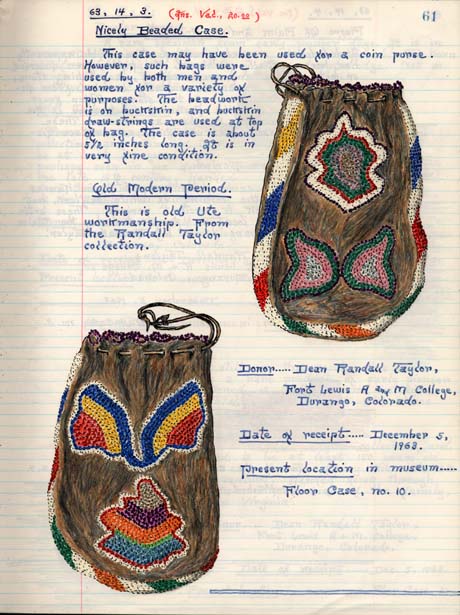 63, 14, 3. (Ins. Val., 20.00)
61
Nicely Beaded Case.
This case may have been used for a coin purse.
However, such bags were
used by both men and
women for a variety of
purposes. The beadwork
is on buckskin, and buckskin
draw-strings are used at top
of bag. The case is about
5 1/2 inches long. It is in
very fine condition.
Old Modern Period.
This is old Ute
workmanship. From
the Randall Taylor
collection.
Donor..... Dean Randall Taylor,
Fort Lewis A and M College,
Durango, Colorado.
Date of receipt..... December 5,
1963.
Present location in museum.....
Floor Case, no. 10.